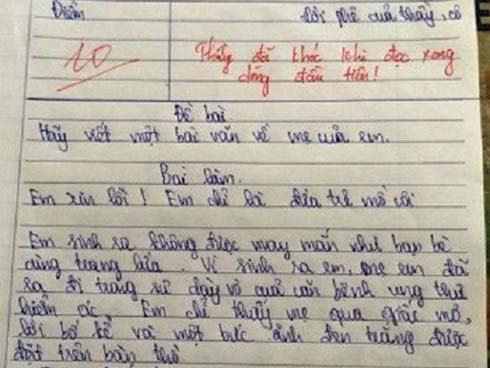 Điểm
Lời phê của thầy, cô
10
Thầy đã khóc khi đọc xong
dòng đầu tiên!
Đề bài
Hãy viết một bài văn về mẹ của em.
Bài làm.
Em xin lỗi! Em chỉ là đứa trẻ mồ côi
Em sinh ra không được may mắn như bạn bè
cùng trang lứa. Vì sinh ra em, mẹ em đã
ra đi trong sự dày vò của căn bệnh ung thư
hiểm ác. Em chỉ thấy mẹ qua giấc mơ,
lời bố kể và một bức ảnh đen trắng được
đặt trên bàn thờ.